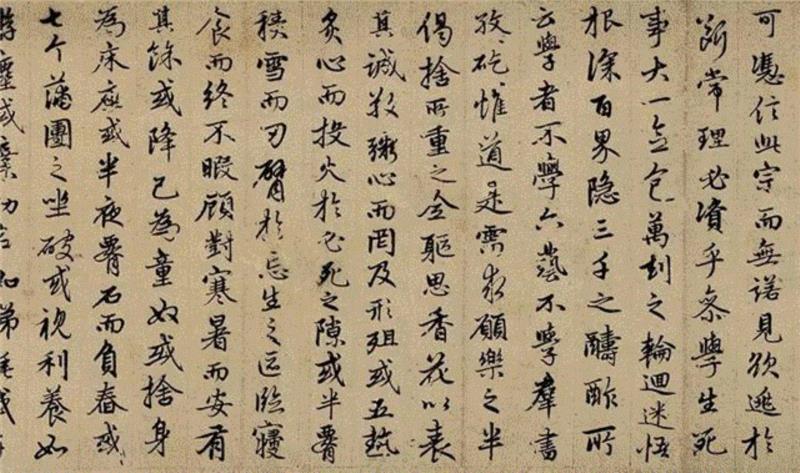 可憑信此宗而無諾見欲逃於
斷常理必資乎參學生死
事大一念包萬劫之輪迴迷悟
根深百界隱三千之酬酢所
云學者不學六藝不學羣書
孜矻惟道是需求願樂之半
偈捨所重之全軀思香花以表
其誠敬彌心而罔及形殂或五熱
炙心而投火於必死之隙或半脊
積雪而刃臂於忘生之區臨寢
食而終不暇顧對寒暑而安有
其餘或降己為童奴或捨身
為床座或半夜脊石而負舂或
七个蒲團之坐破或視利養如
塵或棄功名如